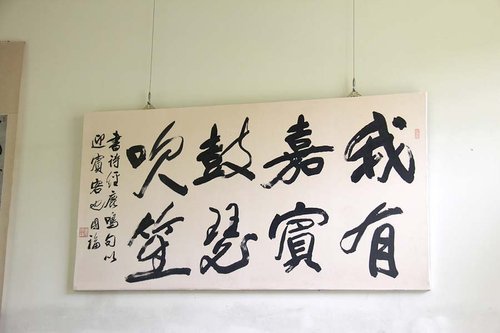 我有
嘉賓
鼓瑟
吹笙
書詩經鹿鳴句以
迎賓客也國福